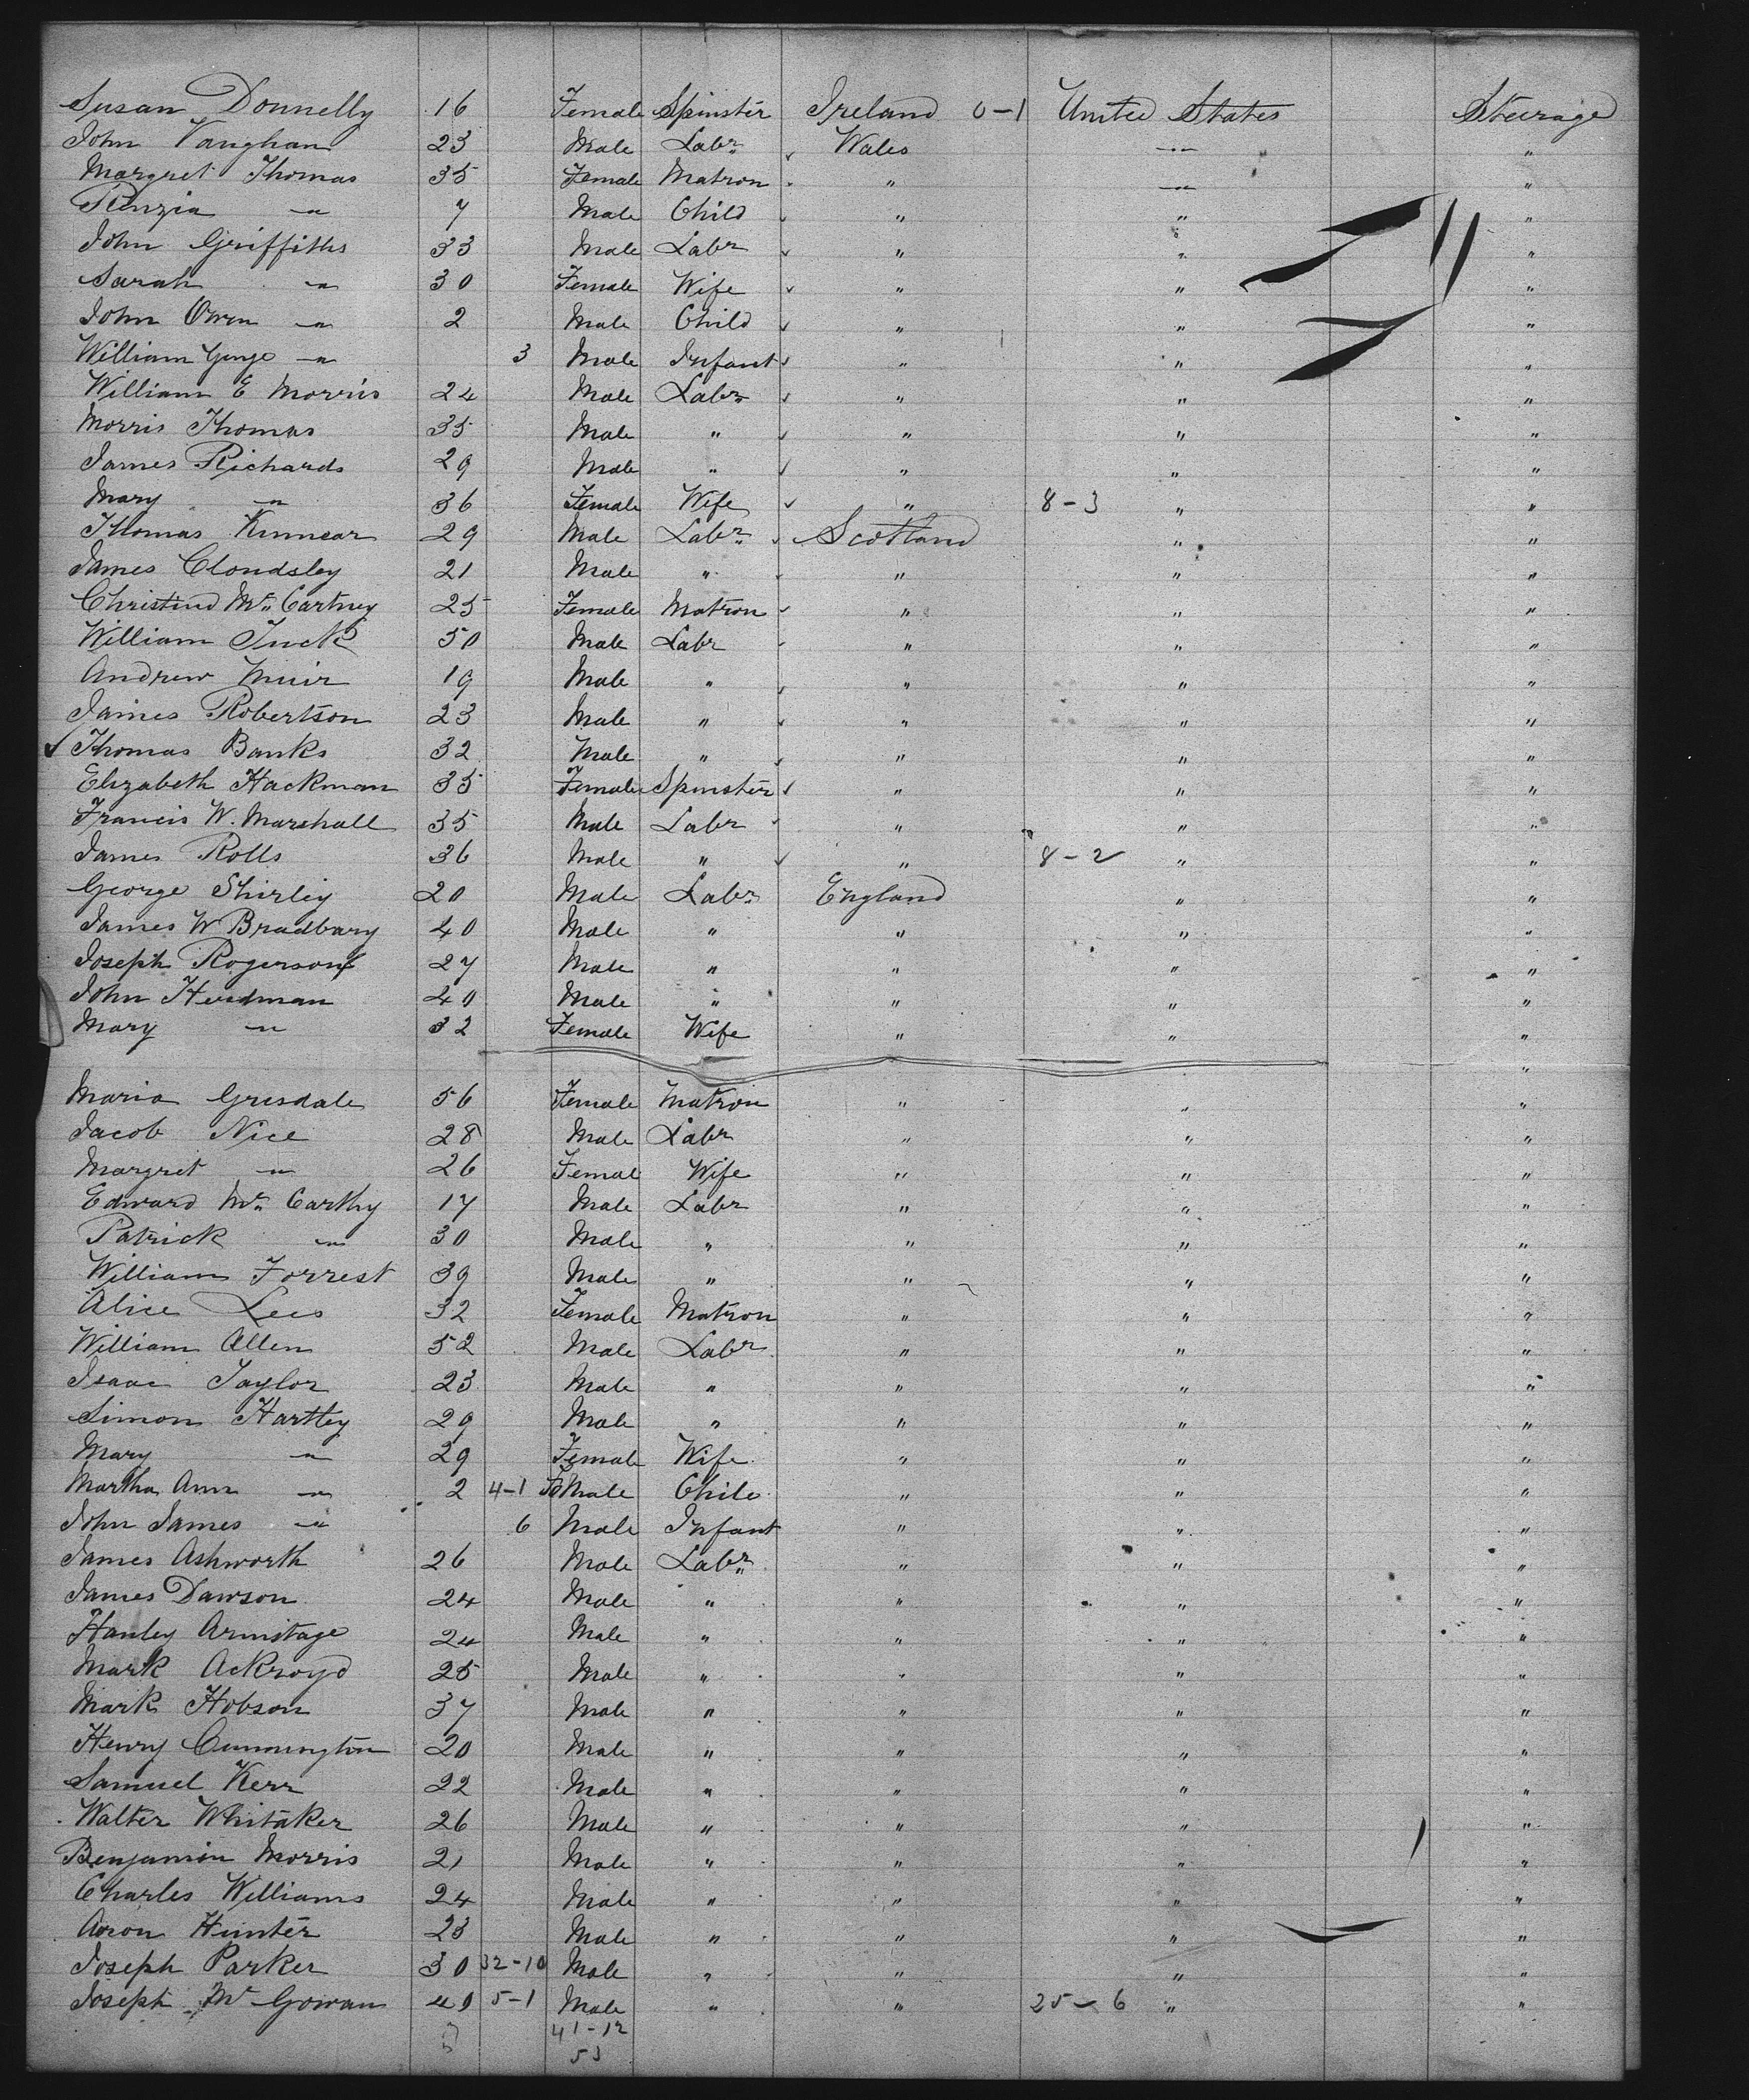 Susan Donnelly 16 Female Spinster Ireland 0-1 United States Steerage
John Vaughan 23 Male Labr ✓ Wales —"— "
Margret Thomas 35 Female Matron " —"— "
Penzia —"— 7 Male Child ✓ " " "
John Griffiths 33 Male Labr ✓ " " "
Sarah —"— 30 Female Wife ✓ " " "
John Owen —"— 2 Male Child ✓ " " "
William George —"— 3 Male Infant ✓ " " "
William E Morris 24 Male Labr ✓ " " "
Morris Thomas 35 Male " ✓ " " "
James Richards 29 Male " ✓ " " "
Mary —"— 36 Female Wife ✓ " 8-3 " "
Thomas Kinnear 29 Male Labr ✓ Scotland " "
James Cloudsley 21 Male " ✓ " " "
Christina Mc Cartney 25 Female Matron ✓ " " "
William Tuck 50 Male Labr ✓ " " "
Andrew Muir 19 Male " ✓ " " "
James Robertson 23 Male " ✓ " " "
✓ Thomas Banks 32 Male " ✓ " " "
Elizabeth Hackman 35 Female Spinster ✓ " " "
Francis W. Marshall 35 Male Labr ✓ " " "
James Rolls 36 Male " ✓ " 8-2 " "
George Shirley 20 Male Labr England " "
James W Bradbury 40 Male " " " "
Joseph Rogerson 27 Male " " " "
John Herdman 40 Male " " " "
Mary —"— 32 Female Wife " " "
"
Maria Grisdale 56 Female Matron " " "
Jacob Nice 28 Male Labr " " "
Margret —"— 26 Female Wife " " "
Edward Mc Carthy 17 Male Labr " " "
Patrick —"— 30 Male " " " "
William Forrest 39 Male " " " "
Alice Lees 32 Female Matron " " "
William Allen 52 Male Labr " " "
Isaac Taylor 23 Male " " " "
Simon Hartley 29 Male " " " "
Mary —"— 29 Female Wife " " "
Martha Ann —"— 2 4-1 FeMale Child " " "
John James —"— 6 Male Infant " " "
James Ashworth 26 Male Labr " " "
James Dawson 24 Male " " " "
Hanley Armitage 24 Male " " " "
Mark Ackroyd 25 Male " " " "
Mark Hobson 37 Male " " " "
Henry Cunnington 20 Male " " " "
Samuel Kerr 22 Male " " " "
Walter Whitaker 26 Male " " " "
Benjamin Morris 21 Male " " " "
Charles Williams 24 Male " " " "
Aaron Hunter 23 Male " " " "
Joseph Parker 30 32-10 Male " " " "
Joseph Mc Gowan 40 5-1 Male " " 25-6 " "
41-12
53